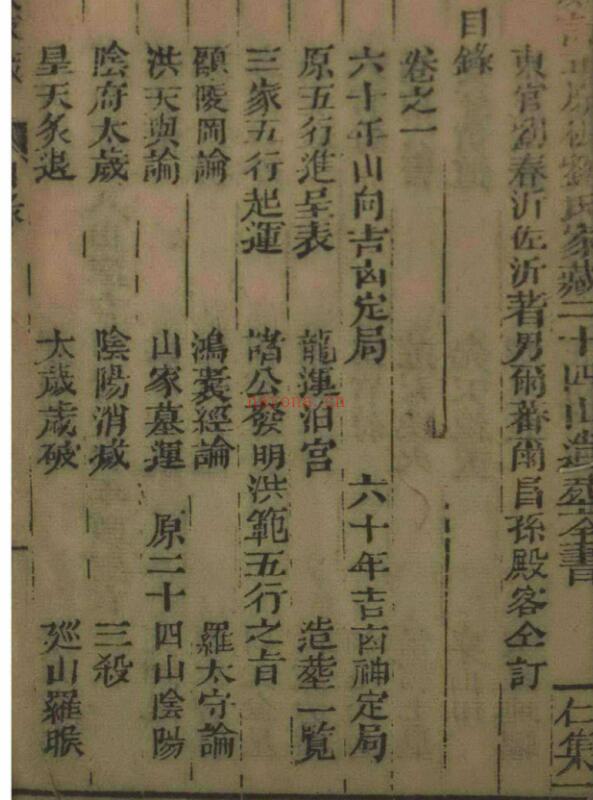 原劉氏家藏二十四山造葬全書 仁集一
東官劉春沂佐沂著男爾蕃爾昌孫殿客仝訂
目錄
卷之一
六十年山向吉凶定局 六十年吉凶神定局
原五行進呈表 龍運泊宮 造葬一覽
三家五行起運 諸公發明洪範五行之旨
頤陵岡論 鴻囊經論 羅太守論
洪天與論 山家墓運 原二十四山陰陽
陰府太歲 陰陽消滅 三殺
星天炙退 太歲歲破 巡山羅睺
目錄 一
nayona.cn